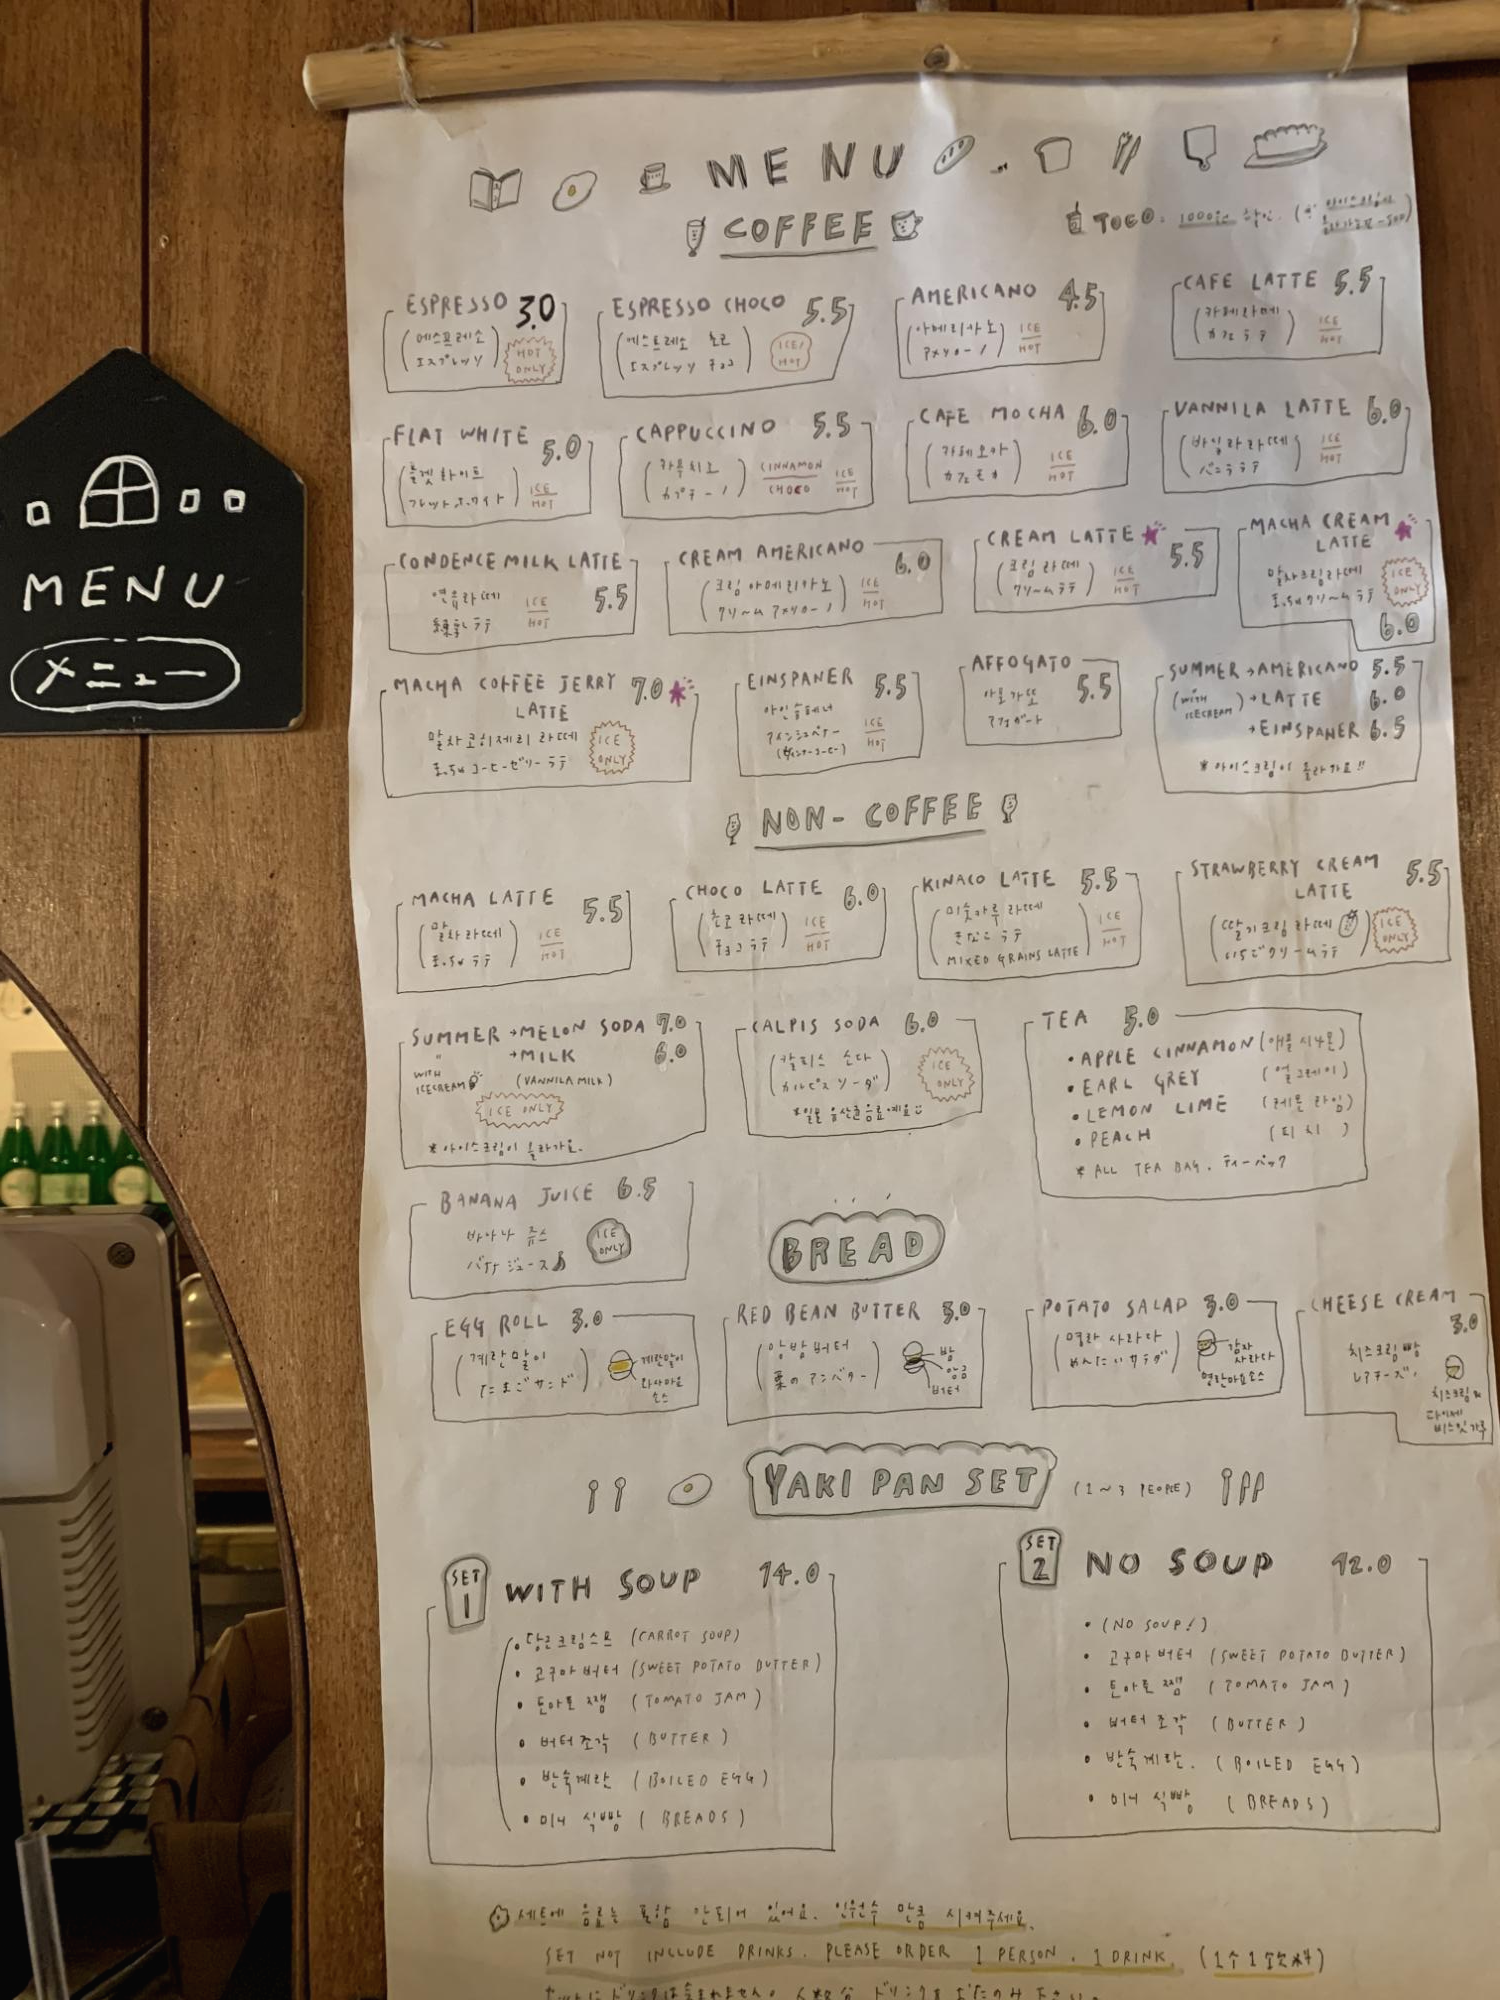 MENU
メニュー
MENU
COFFEE
TOGO. 1000원 할인.
ESPRESSO 3.0
에스프레소
エスプレッソ
HOT ONLY
ESPRESSO CHOCO 5.5
에스프레소 초코
エスプレッソ チョコ
ICE/HOT
AMERICANO 4.5
아메리카노
アメリカーノ
ICE
HOT
CAFE LATTE 5.5
카페라떼
カフェラテ
ICE
HOT
FLAT WHITE 5.0
플랫화이트
フラットホワイト
ICE
HOT
CAPPUCCINO 5.5
카푸치노
カプチーノ
CINNAMON
CHOCO
ICE
HOT
CAFE MOCHA 6.0
카페모카
カフェモカ
ICE
HOT
VANNILA LATTE 6.0
바닐라라떼
バニララテ
ICE
HOT
CONDENCE MILK LATTE 5.5
연유라떼
練乳ラテ
ICE
HOT
CREAM AMERICANO 6.0
크림 아메리카노
クリームアメリカーノ
ICE
HOT
CREAM LATTE 5.5
크림라떼
クリームラテ
ICE
HOT
MACHA CREAM
LATTE
말차크림라떼
まっちゃクリームラテ
ICE ONLY
6.0
MACHA COFFEE JERRY 7.0
LATTE
말차코히제리 라떼
まっちゃコーヒーゼリーラテ
ICE ONLY
EINSPANER 5.5
아인슈페너
アインシュペナー
(ウィンナーコーヒー)
ICE
HOT
AFFOGATO 5.5
아포가또
アフォガート
SUMMER → AMERICANO 5.5
(with ICECREAM) → LATTE 6.0
→ EINSPANER 6.5
* 아이스크림이 올라가요!!
NON-COFFEE
MACHA LATTE 5.5
말차라떼
まっちゃラテ
ICE
HOT
CHOCO LATTE 6.0
초코라떼
チョコラテ
ICE
HOT
KINACO LATTE 5.5
미숫가루라떼
きなこラテ
MIXED GRAINS LATTE
ICE
HOT
STRAWBERRY CREAM 5.5
LATTE
딸기크림라떼
いちごクリームラテ
ICE ONLY
SUMMER → MELON SODA 7.0
→ MILK 6.0
WITH ICECREAM
(VANNILA MILK)
ICE ONLY
* 아이스크림이 올라가요.
CALPIS SODA 6.0
칼피스 소다
カルピスソーダ
ICE ONLY
*일본 유산균음료예요
TEA 5.0
• APPLE CINNAMON (애플시나몬)
• EARL GREY (얼그레이)
• LEMON LIME (레몬라임)
• PEACH (피치)
* ALL TEA BAG. ティーバック
BANANA JUICE 6.5
바나나 쥬스
バナナジュース
ICE ONLY
BREAD
EGG ROLL 3.0
계란말이
たまごサンド
계란말이
와사마요
소스
RED BEAN BUTTER 3.0
앙밤버터
栗のアンバター
밤
앙금
버터
POTATO SALAD 3.0
명란 사라다
めんたいサラダ
감자
사라다
명란마요소스
CHEESE CREAM 3.0
치즈크림빵
レアチーズ
치즈크림&
다이제
비스킷가루
YAKI PAN SET (1~3 PEOPLE)
SET 1 WITH SOUP 14.0
• 당근크림스프 (CARROT SOUP)
• 고구마버터 (SWEET POTATO BUTTER)
• 토마토 쨈 (TOMATO JAM)
• 버터조각 (BUTTER)
• 반숙계란 (BOILED EGG)
• 미니 식빵 (BREADS)
SET 2 NO SOUP 12.0
• (NO SOUP!)
• 고구마버터 (SWEET POTATO BUTTER)
• 토마토 쨈 (TOMATO JAM)
• 버터조각 (BUTTER)
• 반숙계란. (BOILED EGG)
• 미니 식빵 (BREADS)
세트에 음료는 포함 안되어 있어요. 인원수 만큼 시켜주세요.
SET NOT INCLUDE DRINKS. PLEASE ORDER 1 PERSON. 1 DRINK.
セットにドリンクは含まれません。人数分 ドリンクを